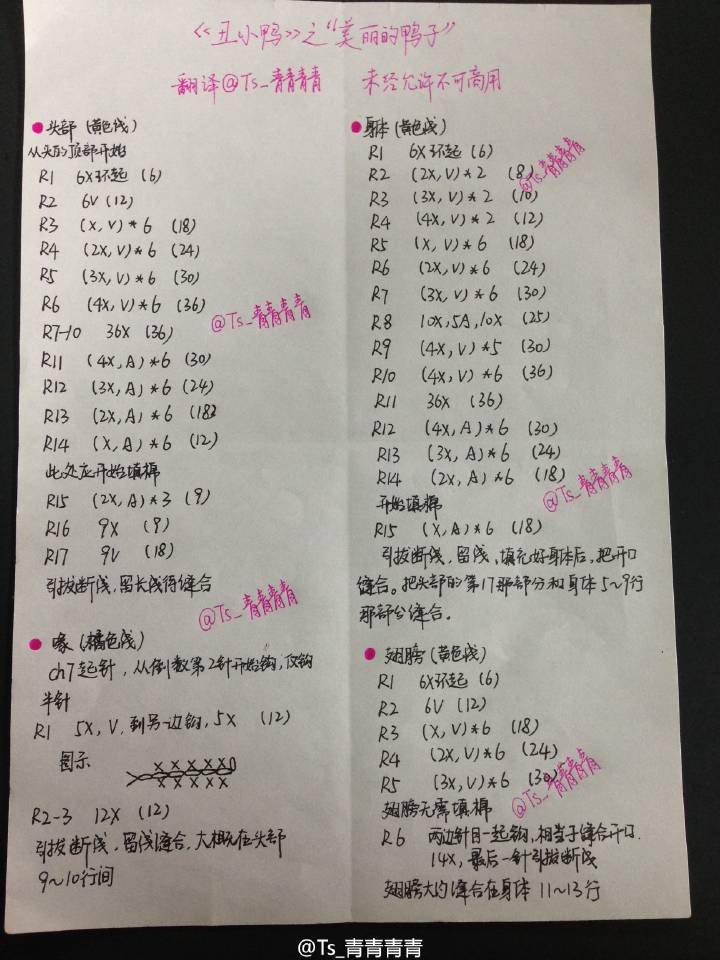 《丑小鸭》之“美丽的鸭子”
翻译@Ts_青青青青 未经允许不可商用
头部(黄色线)
从头的顶部开始
R1 6X环起 (6)
R2 6V (12)
R3 (X,V)*6 (18)
R4 (2X,V)*6 (24)
R5 (3X,V)*6 (30)
R6 (4X,V)*6 (36)
@Ts_青青青青
R7-10 36X (36)
R11 (4X,A)*6 (30)
R12 (3X,A)*6 (24)
R13 (2X,A)*6 (18)
R14 (X,A)*6 (12)
此处应开始填棉
R15 (2X,A)*3 (9)
R16 9X (9)
R17 9V (18)
引拔断线,留长线待缝合
@Ts_青青青青
喙(橘色线)
ch7起针,从倒数第2针开始钩,仅钩
半针
R1 5X,V,到另一边钩,5X (12)
图示
X X X X X
X X X X X
R2-3 12X (12)
引拔断线,留线缝合,大概在头部
9~10行间
身体(黄色线)
R1 6X环起 (6)
R2 (2X,V)*2 (8)
@Ts_青青青青
R3 (3X,V)*2 (10)
R4 (4X,V)*2 (12)
R5 (X,V)*6 (18)
R6 (2X,V)*6 (24)
R7 (3X,V)*6 (30)
R8 10X,5A,10X (25)
R9 (4X,V)*5 (30)
R10 (4X,V)*6 (36)
R11 36X (36)
R12 (4X,A)*6 (30)
R13 (3X,A)*6 (24)
R14 (2X,A)*6 (18)
@Ts_青青青青
开始填棉
R15 (X,A)*6 (18)
引拔断线,留线,填充好身体后,把开口
缝合。把头部的第17那部分和身体5~9行
那部分缝合。
翅膀(黄色线)
R1 6X环起 (6)
R2 6V (12)
R3 (X,V)*6 (18)
R4 (2X,V)*6 (24)
R5 (3X,V)*6 (30)
@Ts_青青青青
翅膀无需填棉
R6 两边针目一起钩,相当于缝合开口.
14X,最后一针引拔断线
翅膀大约缝合在身体 11~13行
@Ts_青青青青